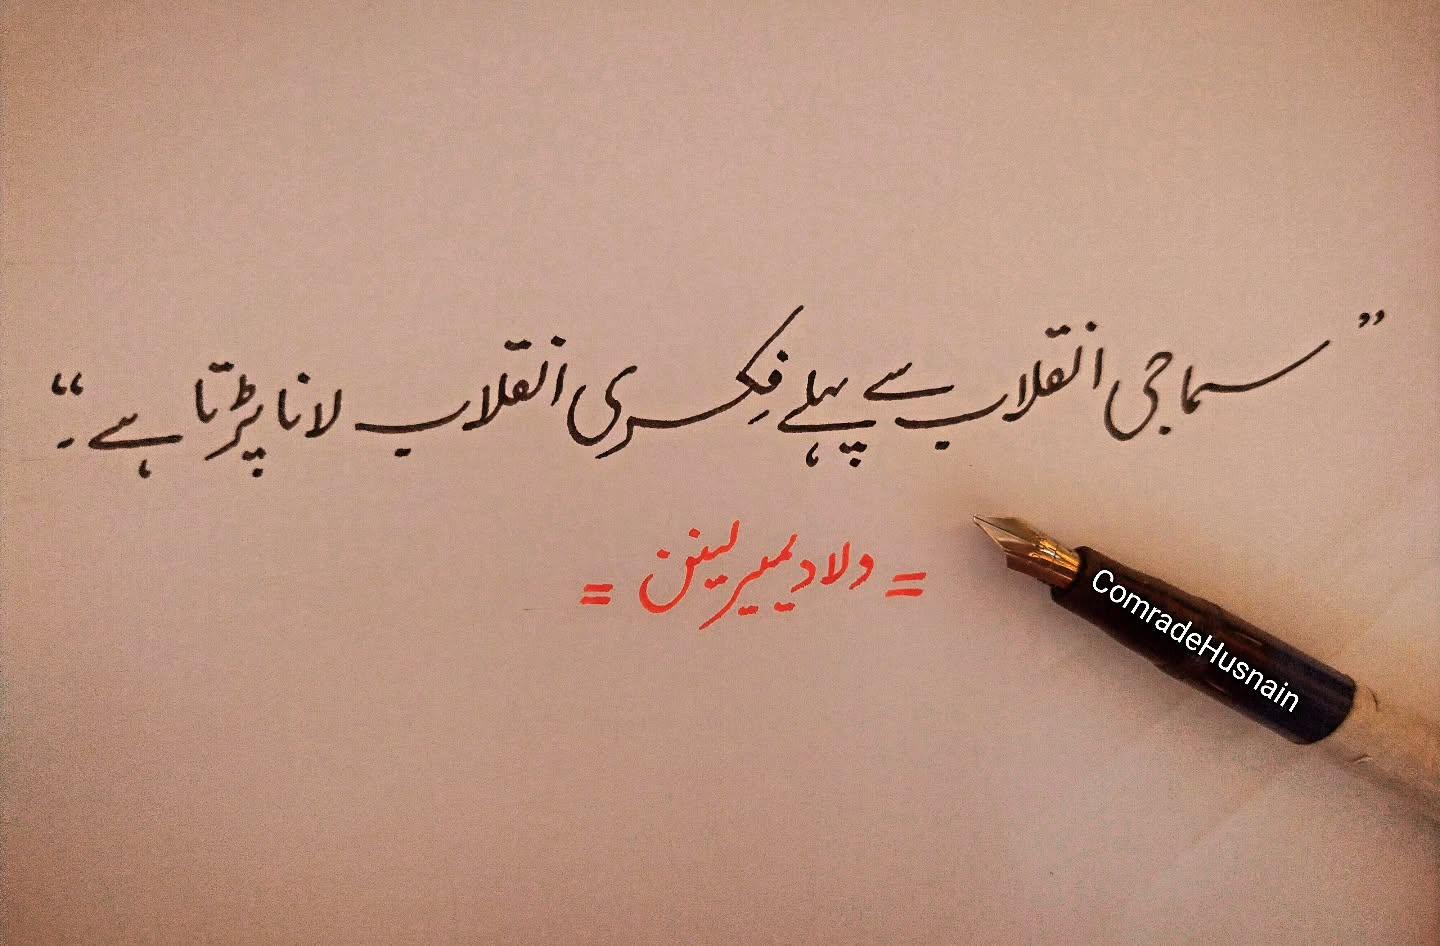 ”سماجی انقلاب سے پہلے فِکری انقلاب لانا پڑتا ہے۔“
= ولادیمیر لینن =
ComradeHusnain